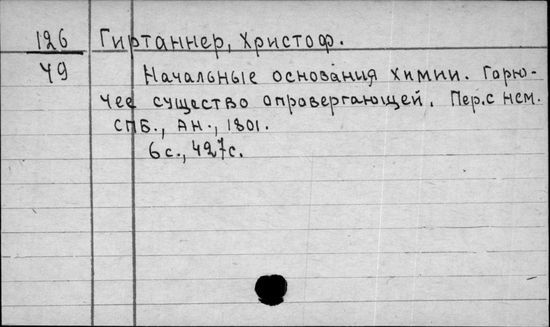 126 Гиртаннер, Христоф.
49 Начальные основания химии. Горю-
чее существо опровергающей. Пер. с нем.
СПБ., АН., 1801.
6 с., 427 с.